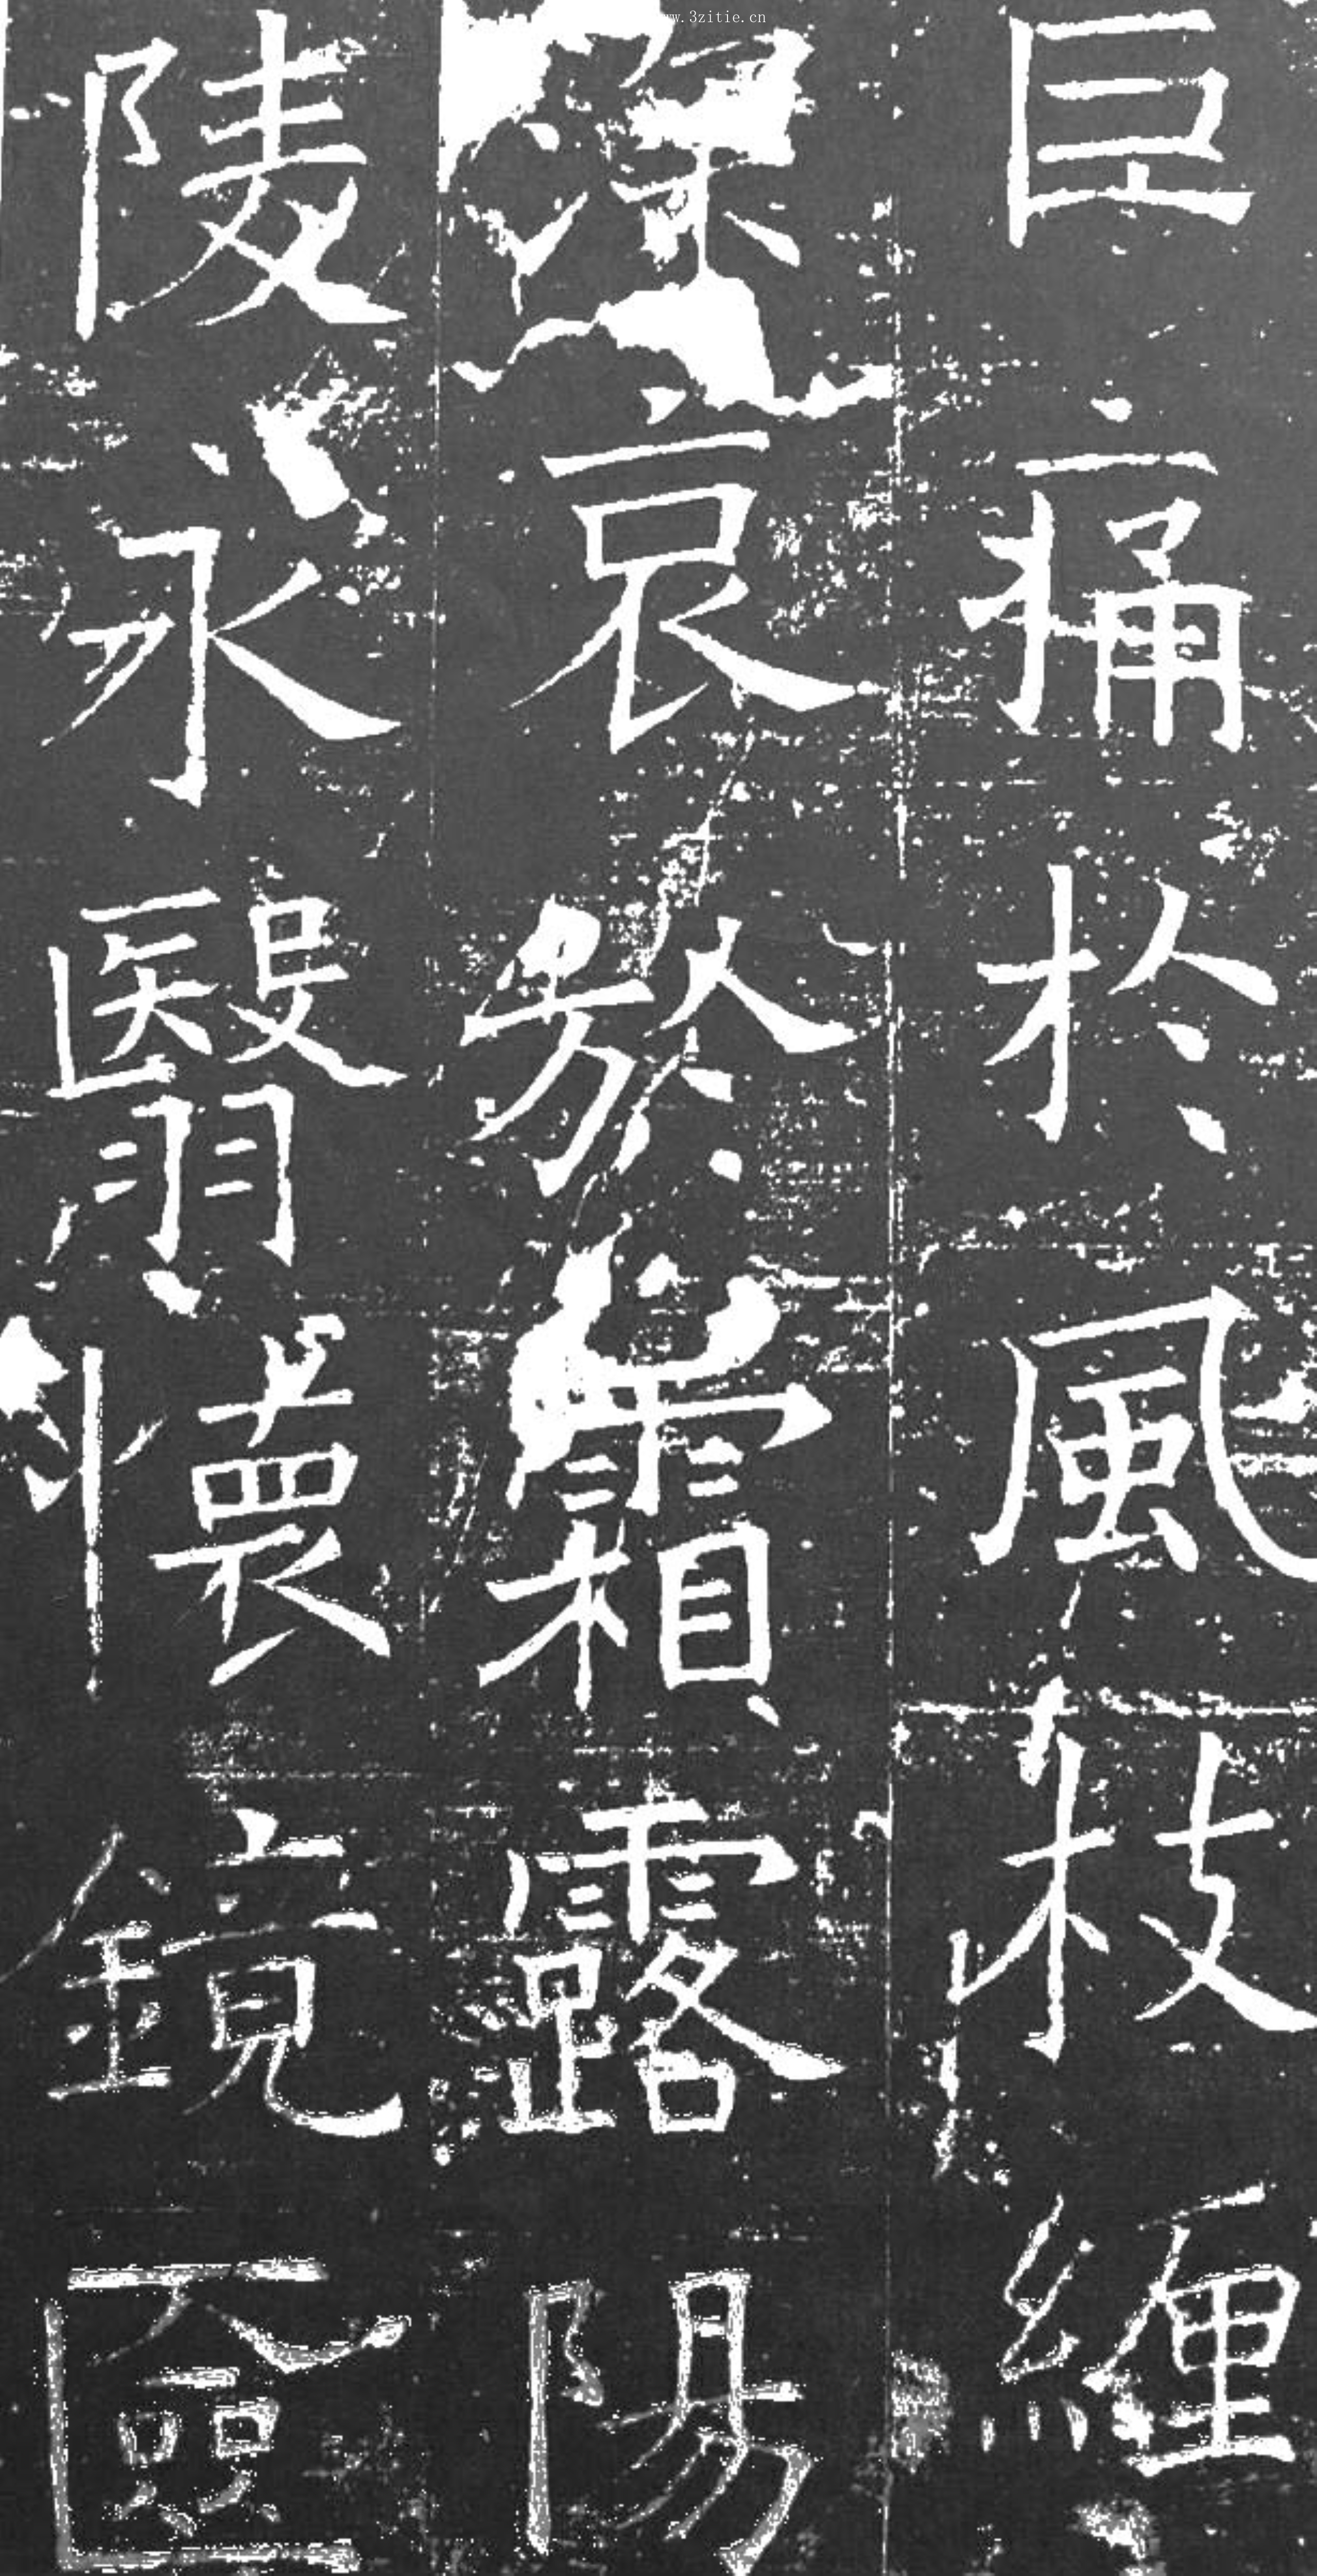 巨痛於風枝纏
深哀於霜露陽
陵永翳懷鏡匳
www.3zitie.cn